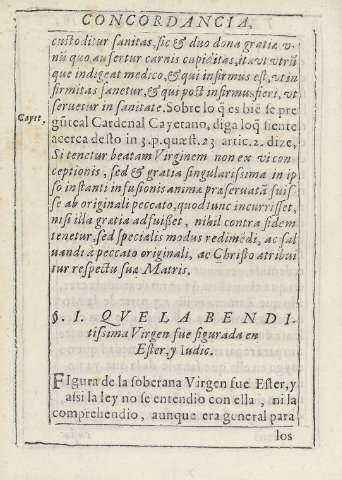 CONCORDANCIA,
custoditur sanitas, sic & duo dona gratiæ v-
nũ quo aufertur carnis cupiditas, ita vt vtrũ
que indigeat medico, & qui infirmus est, vt in
firmitas sanetur, & qui post infirmus fieri, vt
seruetur in sanitate. Sobre lo q̃ es biẽ se pre
gũte al Cardenal Cayetano, diga lo q̃ siente
Cayet, acerca desto in 3.p.quæst.23 artic.2. dize,
Si tenetur beatam Virginem non ex vi con
ceptionis, sed & gratia singularissima in ip
so instanti infusionis anima præseruatã fuis-
se ab originali peccato, quod tunc incurrisset,
nisi illa gratia adfuisset, nihil contra fidem
tenetur, sed specialis modus redimẽdi, ac sal
uandi a peccato originali, ac Christo atribui
tur respectu suæ Matris.
§. I. QVE LA BENDI-
tissima Virgen fue figurada en
Ester, y Iudic.
FIgura de la soberana Virgen fue Ester, y
assi la ley no se entendio con ella, ni la
comprehendio, aunque era general para
los